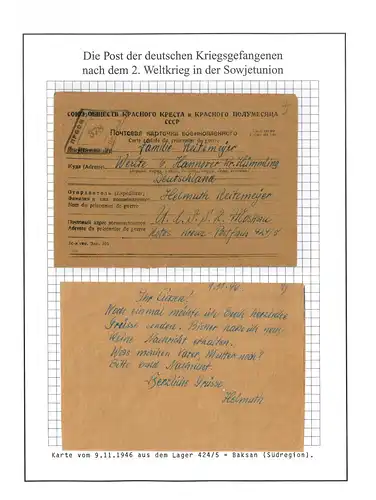 Die Post der deutschen Kriegsgefangenen
nach dem 2. Weltkrieg in der Sowjetunion
СОЮЗ ОБЩЕСТВ КРАСНОГО КРЕСТА и КРАСНОГО ПОЛУМЕСЯЦА
СССР
Почтовая карточка военнопленного
Carte postale du prisonnier de guerre
Familie Reitemeyer
Куда (Адрес)
Werlte ü. Hannover Kr. Hümmling
Deutschland
Отправитель (Expéditeur)
Фамилия и имя военнопленного
Nom du prisonnier de guerre
Helmuth Reitemeyer
Почтовый адрес военнопленного
Adresse du prisonnier de guerre
U.d.S.S.R. Moskau
Rotes Kreuz - Postfach 424/5
9.11.46
Ihr Lieben!
Noch einmal möchte ich Euch herzliche
Grüsse senden. Bisher habe ich noch
keine Nachricht erhalten.
Was machen Vater, Mutter noch?
Bitte bald Nachricht
Herzliche Grüsse
Helmuth
Karte vom 9.11.1946 aus dem Lager 424/5 - Baksan (Südregion).